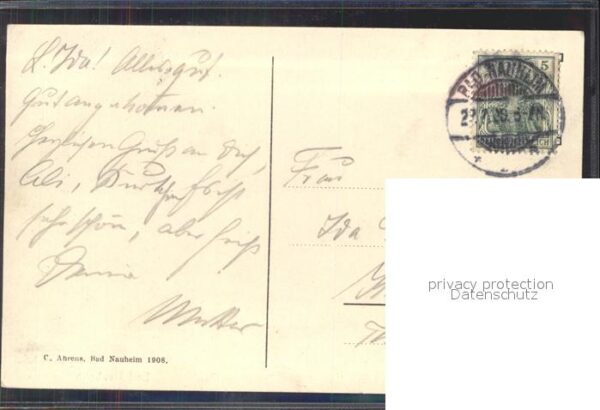 L. Ida! Alles gut.
Gut angekommen.
Herzlichen Gruß an Dich,
sehr schön, aber heiß
Deine
Mutter
C. Ahrens, Bad Nauheim 1908.
5
BAD-NAUHEIM
Frau
Ida
privacy protection
Datenschutz